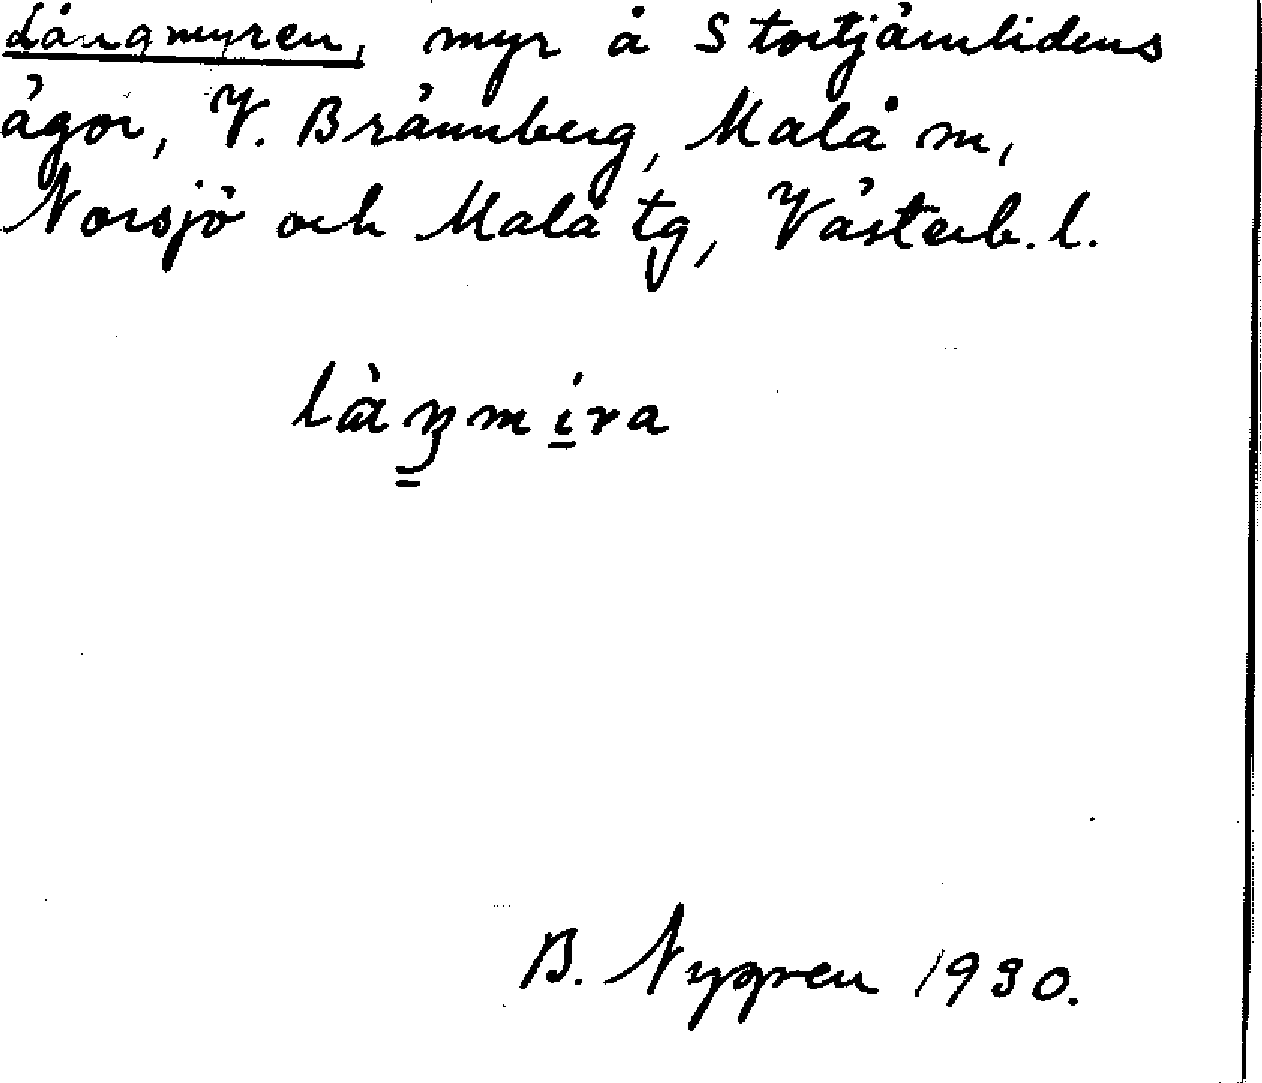 Långmyren, myr å Stortjämlidens
ägor, V. Brännberg, Malå sn,
Norsjö och Malå tg, Västerb. l.
B. Nygren 1930.